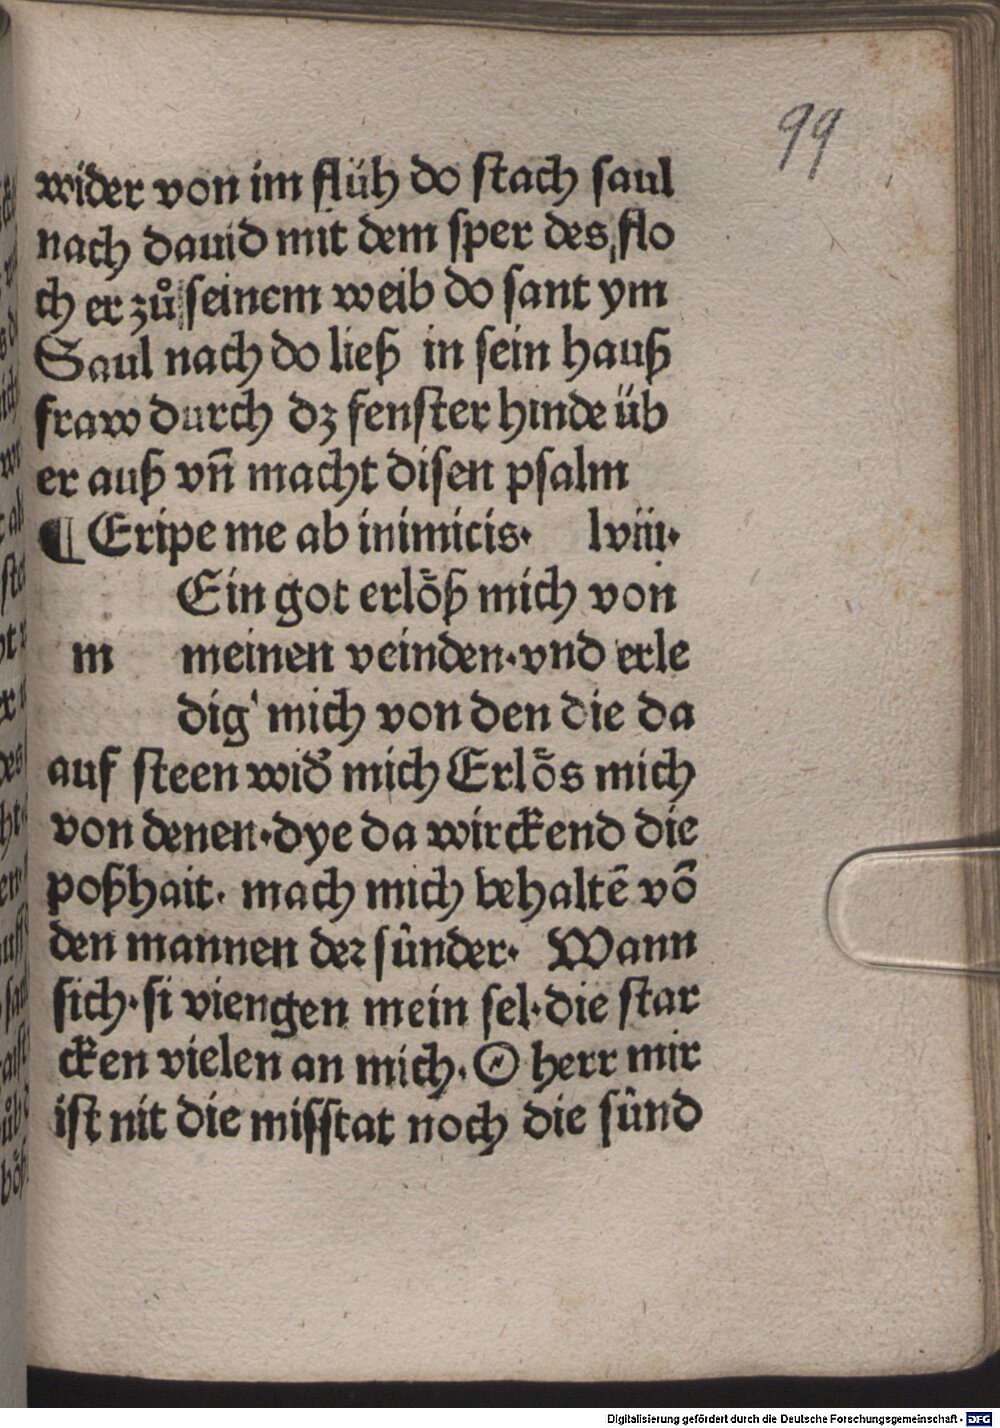 99
wider von im flüh do stach saul
nach dauid mit dem sper des flo
ch er zů seinem weib do sant ym
Saul nach do ließ in sein hauß
fraw durch dz fenster hinde üb
er auß vn̄ macht disen psalm
¶ Eripe me ab inimicis· lviii·
Ein got erlőß mich von
m meinen veinden·vnd erle
dig' mich von den die da
auf steen wid̛ mich Erlős mich
von denen·dye da wirckend die
poßhait· mach mich behaltē vō
den mannen der sûnder· Wann
sich·si viengen mein sel·die star
cken vielen an mich·O herr mir
ist nit die misstat noch die sûnd
Digitalisierung gefördert durch die Deutsche Forschungsgemeinschaft - DFG